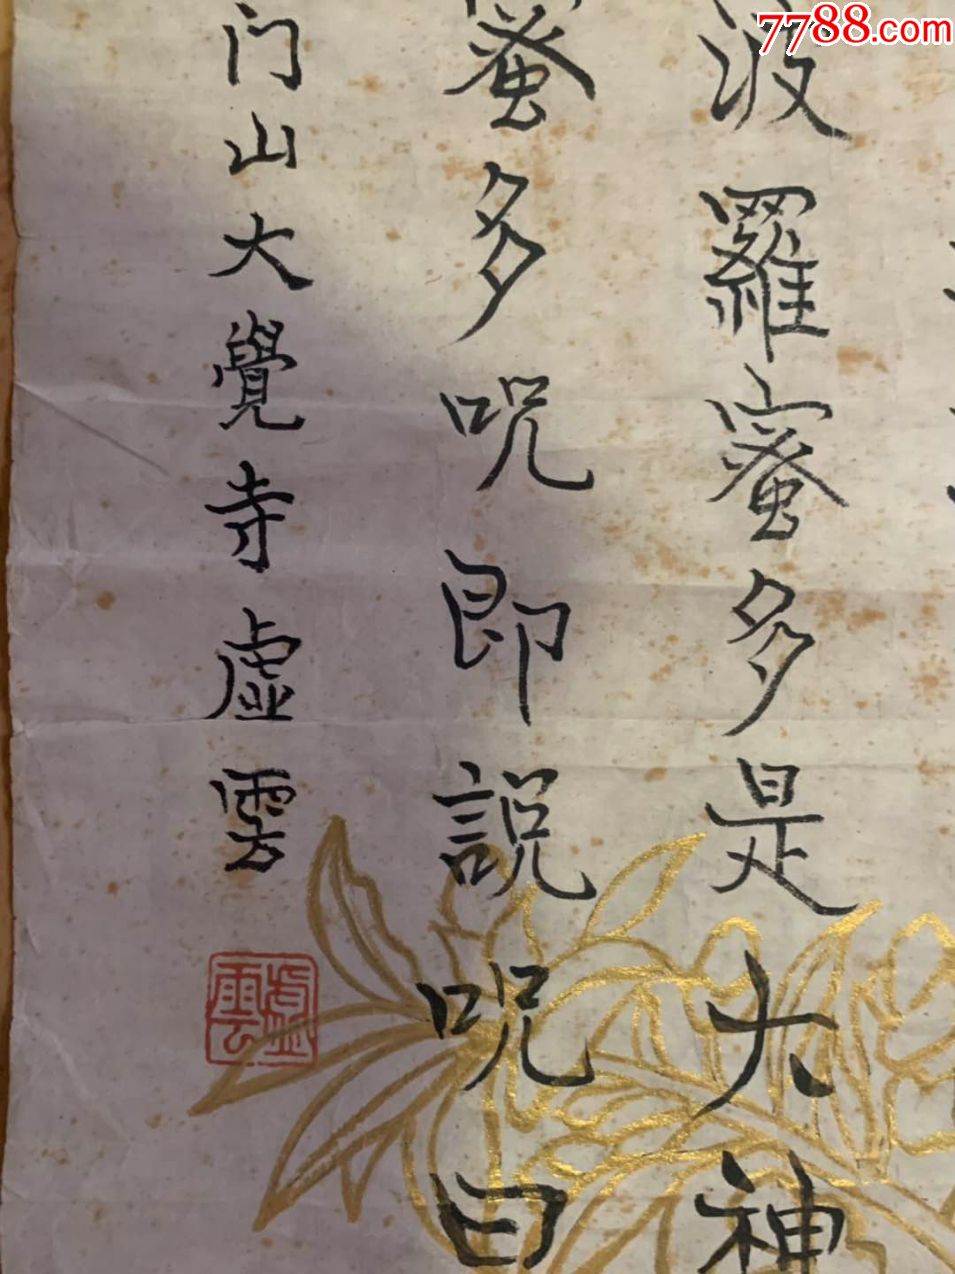 7788.com
波羅蜜多是大神
蜜多呪即説呪曰
门山大覺寺虛雲
虛雲